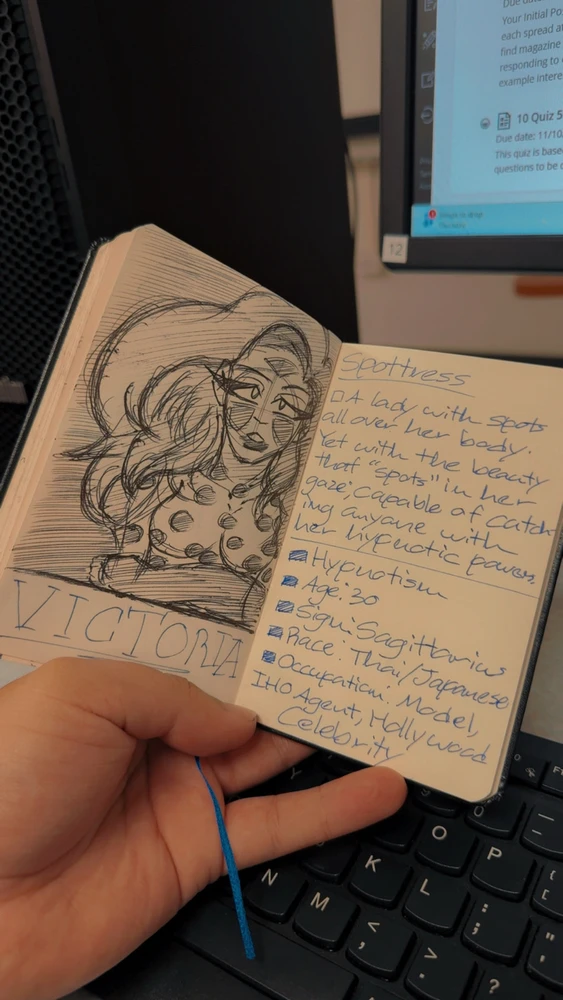 Due date
Your Initial Po
each spread a
find magazine
responding to
example intere
10 Quiz 5
Due date: 11/10
This quiz is base
questions to be
12
VICTORIA
Spottress
A lady with spots
all over her body.
Yet with the beauty
that "spots" in her
gaze; capable of catch-
ing anyone with
her hypnotic powers.
Hypnotism
Age: 30
Sign: Sagittarius
Race: Thai/Japanese
Occupation: Model,
IHO Agent, Hollywood
Celebrity
O
P
K
L
N
M